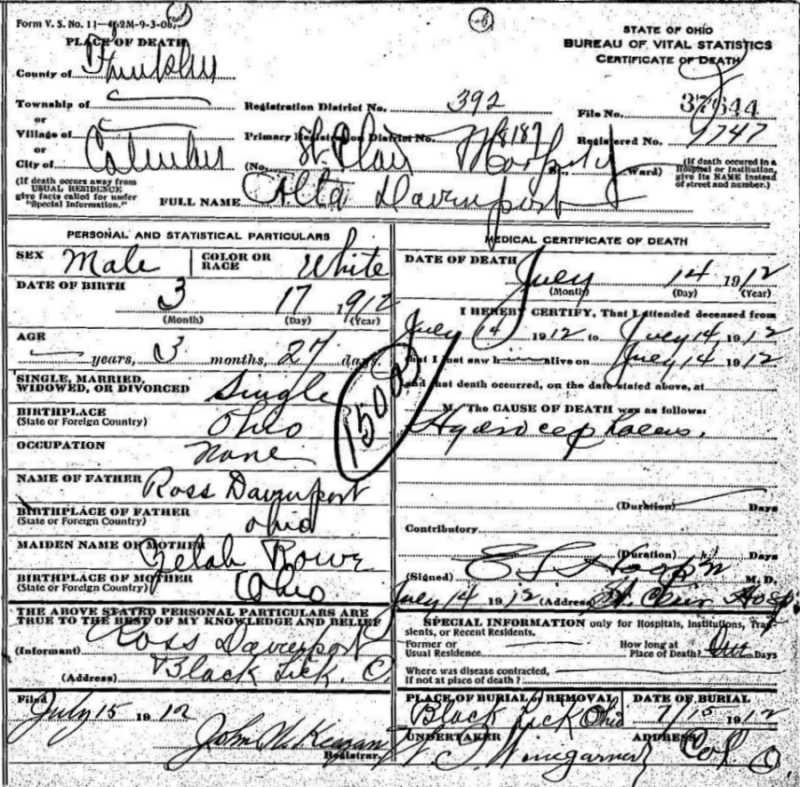 Form V. S. No. 11
STATE OF OHIO
BUREAU OF VITAL STATISTICS
CERTIFICATE OF DEATH
PLACE OF DEATH
County of Franklin
Township of
or
Village of
or
City of Columbus
(If death occurs away from USUAL RESIDENCE give facts called for under "Special Information.")
Registration District No. 392
File No. 37644
Primary Registration District No. 8187
Registered No. 1747
(No. St Clair Hospital St., Ward)
(If death occured in a Hospital or Institution, give its NAME instead of street and number.)
FULL NAME Davenport
PERSONAL AND STATISTICAL PARTICULARS
SEX Male
COLOR OR RACE White
DATE OF BIRTH 3 17 1912
(Month) (Day) (Year)
AGE
years, 3 months, 27 days
SINGLE, MARRIED, WIDOWED, OR DIVORCED Single
BIRTHPLACE
(State or Foreign Country) Ohio
OCCUPATION none
NAME OF FATHER Ross Davenport
BIRTHPLACE OF FATHER
(State or Foreign Country) Ohio
MAIDEN NAME OF MOTHER Zelah Rowe
BIRTHPLACE OF MOTHER
(State or Foreign Country) Ohio
THE ABOVE STATED PERSONAL PARTICULARS ARE TRUE TO THE BEST OF MY KNOWLEDGE AND BELIEF
(Informant) Ross Davenport
(Address) Black Lick. O.
Filed July 15 1912
Registrar.
150a
MEDICAL CERTIFICATE OF DEATH
DATE OF DEATH July 14 1912
(Month) (Day) (Year)
I HEREBY CERTIFY, That I attended deceased from
July 14 1912 to July 14 1912
that I last saw him alive on July 14 1912
and that death occurred, on the date stated above, at
M. The CAUSE OF DEATH was as follows:
Hydrocephalus.
(Duration) Days
Contributory
(Duration) Days
(Signed) M. D.
July 14 1912 (Address) St. Clair Hosp.
SPECIAL INFORMATION only for Hospitals, Institutions, Transients, or Recent Residents.
Former or Usual Residence
How long at Place of Death? One Days
Where was disease contracted, If not at place of death?
PLACE OF BURIAL or REMOVAL
Black Lick Ohio
DATE OF BURIAL
7/15 1912
UNDERTAKER
Winegarner
ADDRESS
Col O.